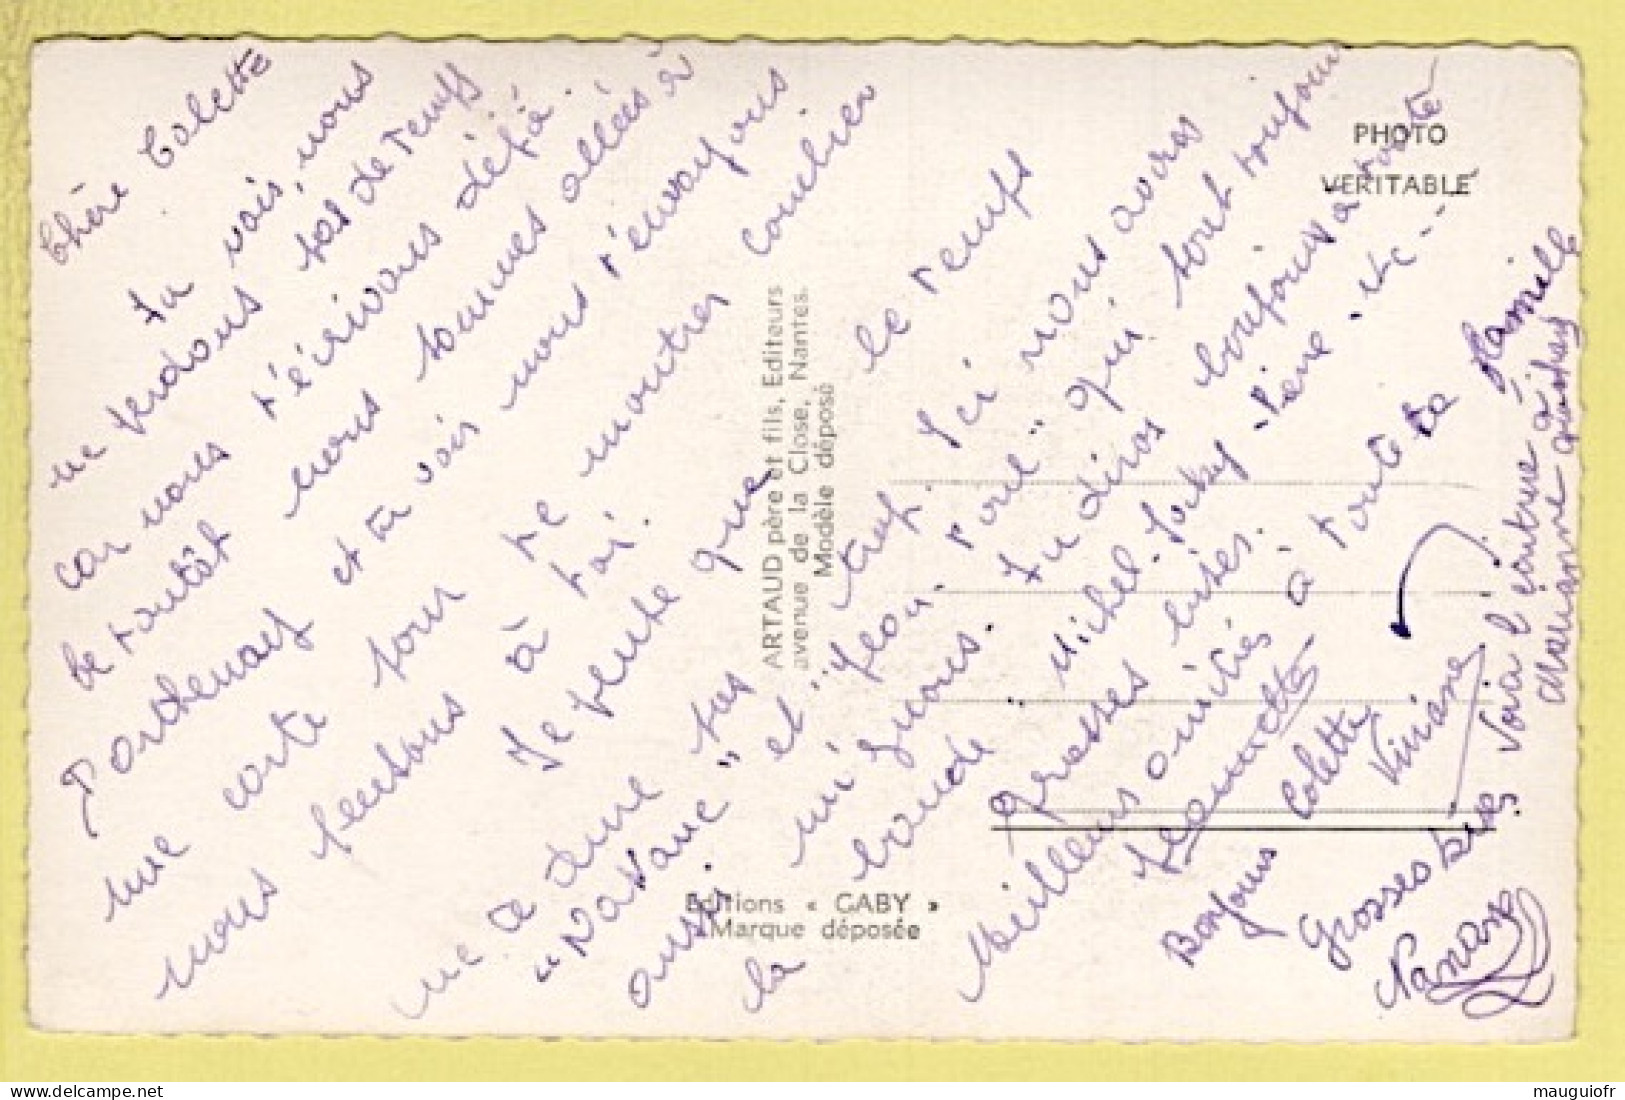 Chère Colette
Tu vois, nous
ne perdons pas de temps
car nous t'écrivons déjà.
Ce tantôt nous sommes allées à
Parthenay et tu vois nous t'envoyons
une carte pour te montrer combien
nous pensons à toi.
Je pense que le temps
ne te dure pas trop. Ici nous avons
"Navane" et "Jean-Paul" qui sont toujours
aussi mignons. Tu diras bonjour à toute
la bande : Michel - Jacky - Pierre - etc - -
grosses bises.
Meilleurs amitiés à toute ta famille
Jeannette
Bonjour Colette
Viviane
Grosses bises
Nanou
Voir l'écriture à
Marianne
PHOTO
VERITABLE
ARTAUD père et fils, Editeurs
avenue de la Close, Nantes.
Modèle déposé
Editions « GABY »
Marque déposée
mauguiofr